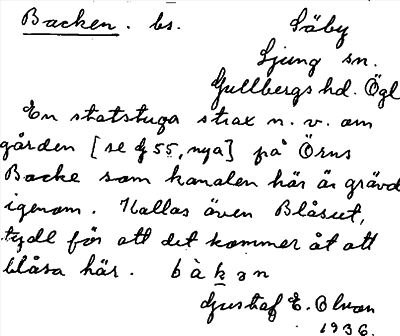 Backen. bs. Säby
Ljung sn.
Gullbergs hd. Ögl
En statstuga strax n. v. om
gården [se G 55, nya] på Örns
Backe som kanalen här är grävd
igenom. Kallas även Blåset,
tydl för att det kommer åt att
blåsa här. bàkən
Gustaf E. Olson
1936.